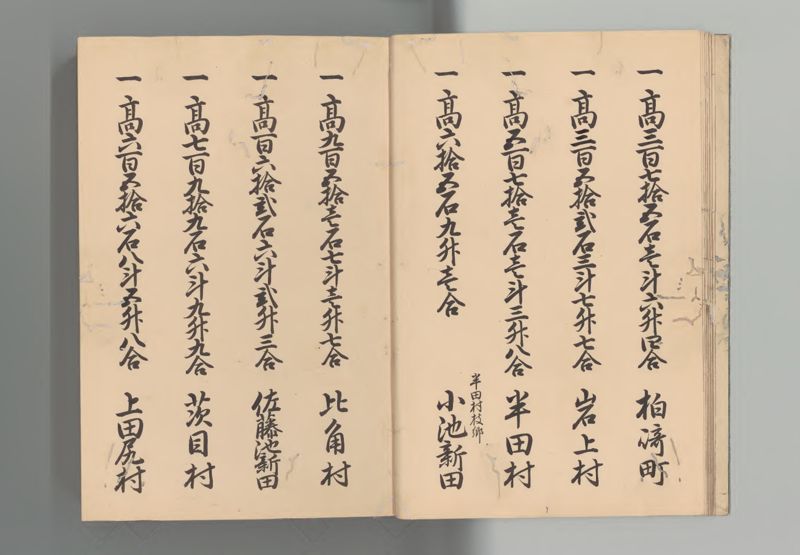 一高三百七拾五石壱斗六升四合 柏﨑町
一高三百五拾弐石三斗七升七合 岩上村
一高五百七拾壱石壱斗三升八合 半田村
一高六拾五石九升壱合 半田村枝郷 小池新田
一高九百五拾壱石七斗壱升七合 比角村
一高百六拾弐石六斗弐升三合 佐藤池新田
一高七百九拾九石六斗九升九合 茨目村
一高六百五拾六石八斗五升八合 上田尻村